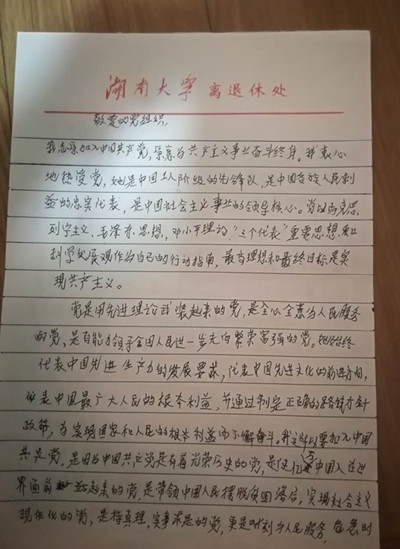 湖南大学 离退休处
敬爱的党组织:
我志愿加入中国共产党,愿意为共产主义事业奋斗终身。我衷心
地热爱党,她是中国工人阶级的先锋队,是中国各族人民利
益的忠实代表,是中国社会主义事业的领导核心。党以马克思
列宁主义、毛泽东思想、邓小平理论、"三个代表"重要思想和
科学发展观作为自己的行动指南,最高理想和最终目标是实
现共产主义。
党是用先进理论武装起来的党,是全心全意为人民服务
的党,是有能力领导全国人民进一步走向繁荣富强的党。她始终
代表中国先进生产力的发展要求,代表中国先进文化的前进方向,
代表中国最广大人民的根本利益,并通过制定正确的路线方针
政策,为实现国家和人民的根本利益而不懈奋斗。我之所以要加入中国
共产党,是因为中国共产党是有着光荣历史的党,是
界面前 起来的党,是带领中国人民摆脱贫困落后,实现社会主义
现代化的党,是持真理,实事求是的党,更是时刻为人民服务,